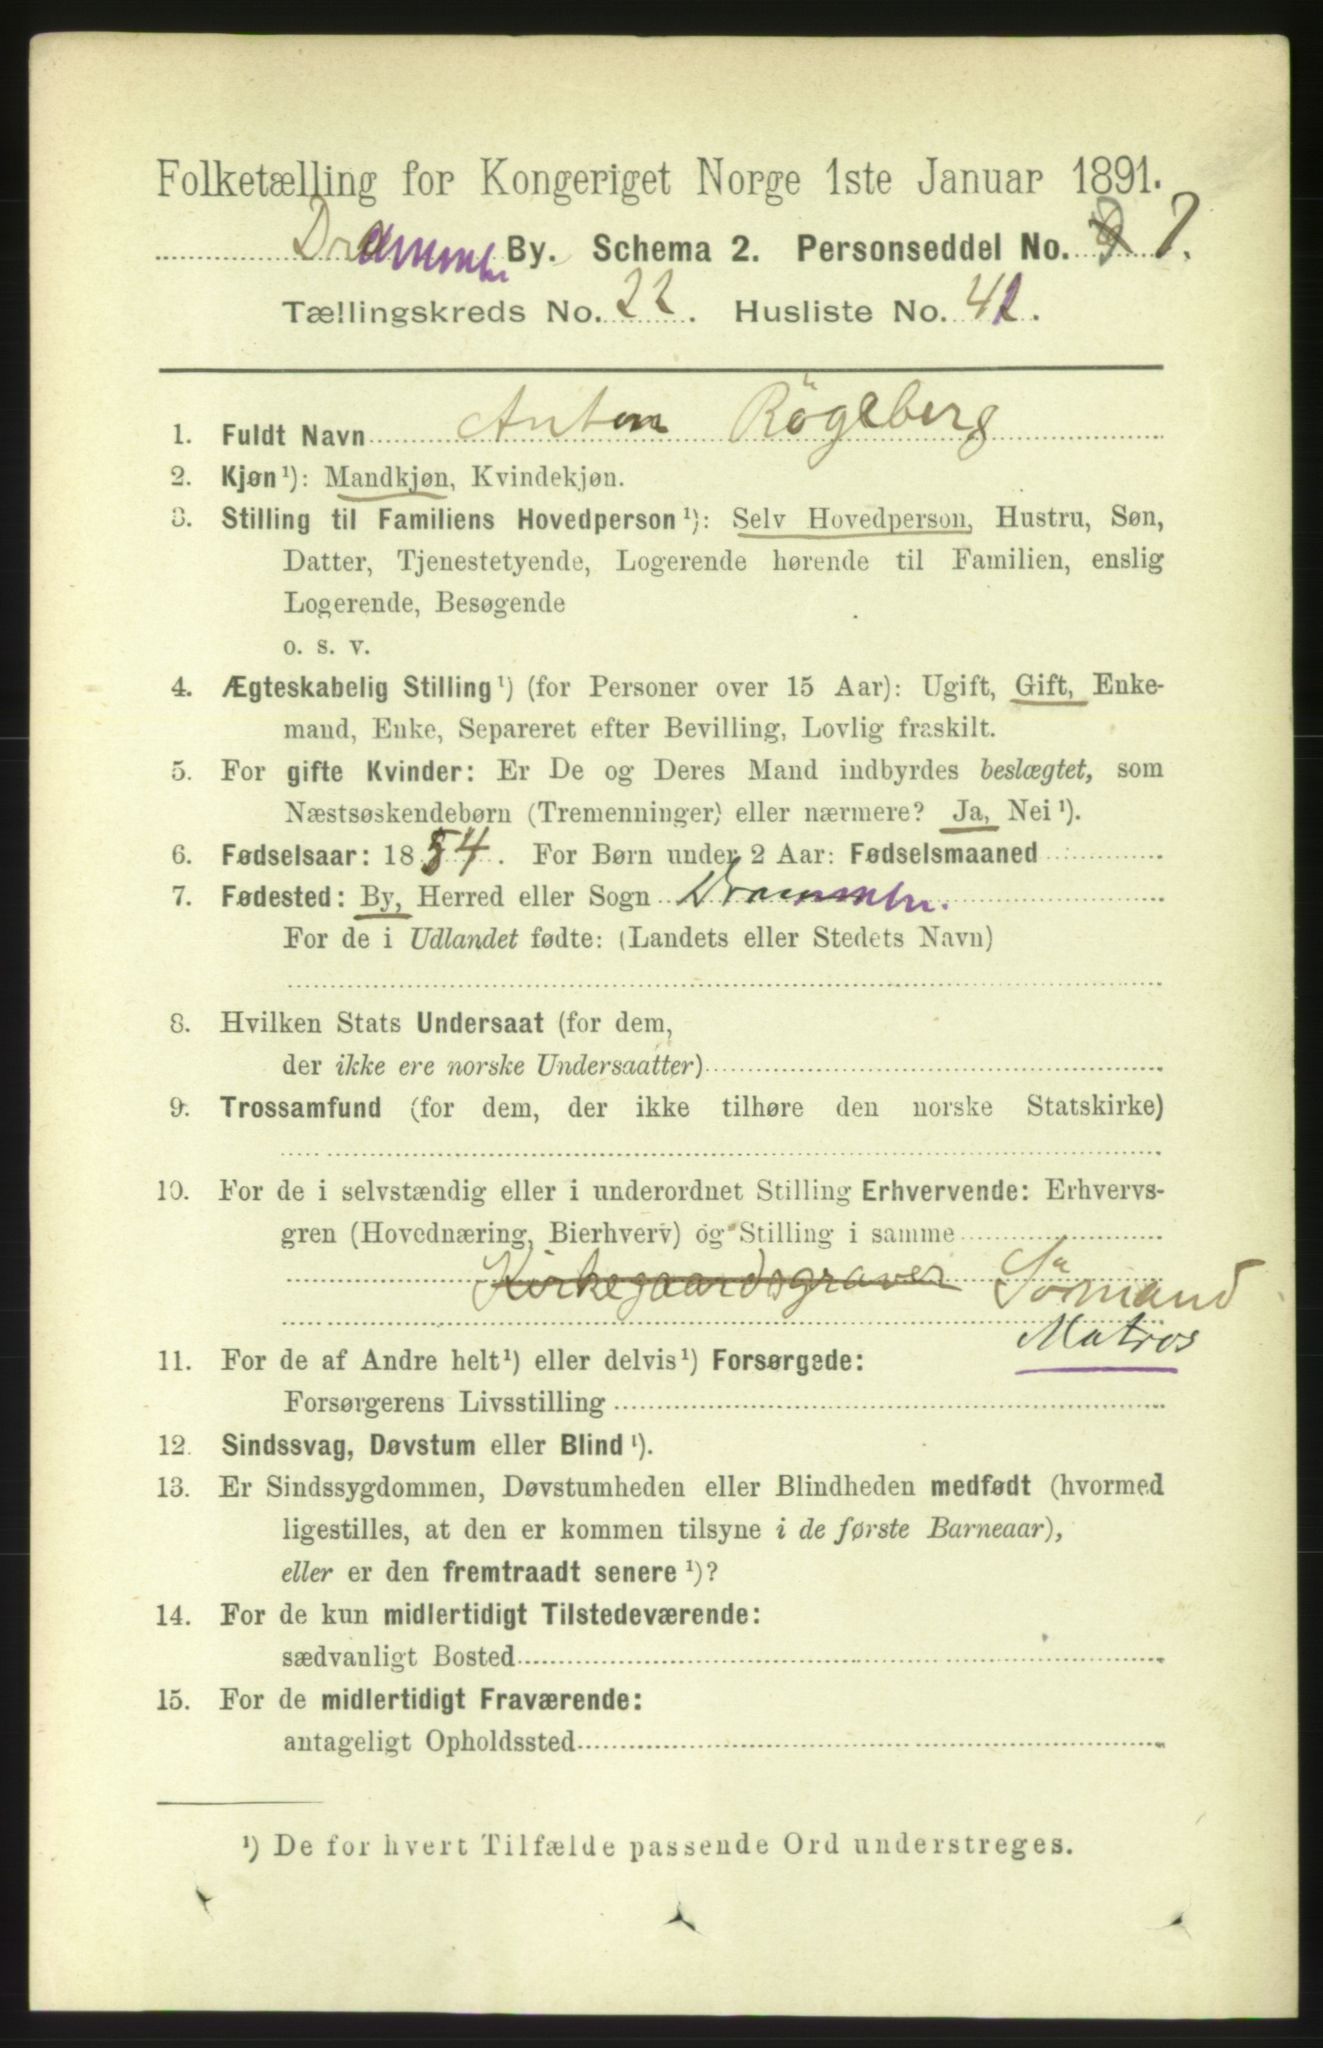 Folketælling for Kongeriget Norge 1ste Januar 1891.
Drammen By. Schema 2. Personseddel No. 7.
Tællingskreds No. 22. Husliste No. 42.
1. Fuldt Navn Anton Rögeberg
2. Kjøn¹): Mandkjøn, Kvindekjøn.
3. Stilling til Familiens Hovedperson¹): Selv Hovedperson, Hustru, Søn,
Datter, Tjenestetyende, Logerende hørende til Familien, enslig
Logerende, Besøgende
o. s. v.
4. Ægteskabelig Stilling¹) (for Personer over 15 Aar): Ugift, Gift, Enke-
mand, Enke, Separeret efter Bevilling, Lovlig fraskilt.
5. For gifte Kvinder: Er De og Deres Mand indbyrdes beslægtet, som
Næstsøskendebørn (Tremenninger) eller nærmere? Ja, Nei¹).
6. Fødselsaar: 1854. For Børn under 2 Aar: Fødselsmaaned
7. Fødested: By, Herred eller Sogn Drammen.
For de i Udlandet fødte: (Landets eller Stedets Navn)
8. Hvilken Stats Undersaat (for dem,
der ikke ere norske Undersaatter)
9. Trossamfund (for dem, der ikke tilhøre den norske Statskirke)
10. For de i selvstændig eller i underordnet Stilling Erhvervende: Erhvervs-
gren (Hovednæring, Bierhverv) og Stilling i samme
Kirkegaardsgraver Sömand
Matros
11. For de af Andre helt¹) eller delvis¹) Forsørgede:
Forsørgerens Livsstilling
12. Sindssvag, Døvstum eller Blind¹).
13. Er Sindssygdommen, Døvstumheden eller Blindheden medfødt (hvormed
ligestilles, at den er kommen tilsyne i de første Barneaar),
eller er den fremtraadt senere¹)?
14. For de kun midlertidigt Tilstedeværende:
sædvanligt Bosted
15. For de midlertidigt Fraværende:
antageligt Opholdssted
¹) De for hvert Tilfælde passende Ord understreges.